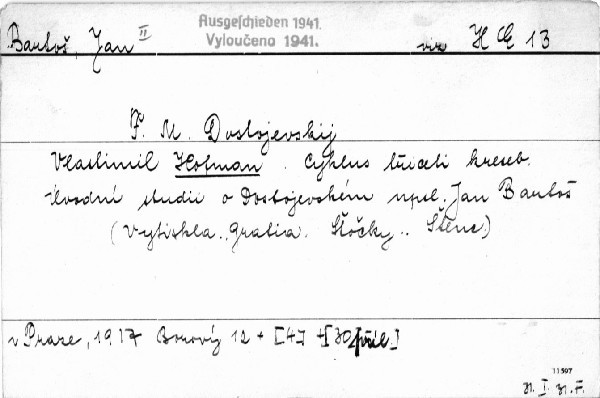 Bartoš, Jan II
Ausgeschieden 1941.
Vyloučeno 1941.
viz H E 13
F. M. Dostojevskij
Vlastimil Hofman. Cyklus třiceti kreseb.
Úvodní studii o Dostojevském naps. Jan Bartoš
(Vytiskla.. Grafia. Štočky.. Štenc)
v Praze, 1917 Borový 12 + [4] + [30 příl.]
11597